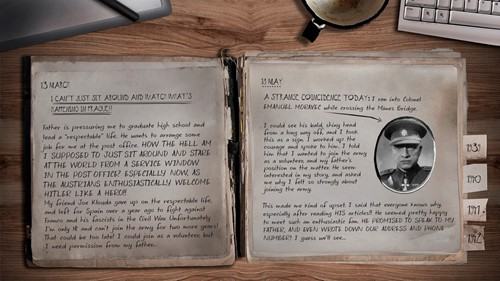 13 MARCH
I CAN'T JUST SIT AROUND AND WATCH WHAT'S
HAPPENING IN PRAGUE!!
Father is pressuring me to graduate high school and
lead a "respectable" life. He wants to arrange some
job for me at the post office. HOW THE HELL AM
I SUPPOSED TO JUST SIT AROUND AND STARE
AT THE WORLD FROM A SERVICE WINDOW
IN THE POST OFFICE? ESPECIALLY NOW, AS
THE AUSTRIANS ENTHUSIASTICALLY WELCOME
HITLER LIKE A HERO!!
My friend Joe Klouda gave up on the respectable life,
and left for Spain over a year ago to fight against
Franco and his fascists in the Civil War. Unfortunately
I'm only 18 and can't join the army for two more years!
That could be too late! I could join as a volunteer, but
I need permission from my father...
18 MAY
A STRANGE COINCIDENCE TODAY: I ran into Colonel
EMANUEL MORAVEC while crossing the Mánes Bridge.
I could see his bald, shiny head
from a long way off, and I took
this as a sign. I worked up the
courage and spoke to him. I told
him that I wanted to join the army
as a volunteer, and my father's
position on the matter. He seemed
interested in my story, and asked
me why I felt so strongly about
joining the army.
This made me kind of upset. I said that everyone knows why,
especially after reading HIS articles!! He seemed pretty happy
to meet such an enthusiastic fan. HE PROMISED TO SPEAK TO MY
FATHER, AND EVEN WROTE DOWN OUR ADDRESS AND PHONE
NUMBER!! I guess we'll see...
1939
1940
1941
1942